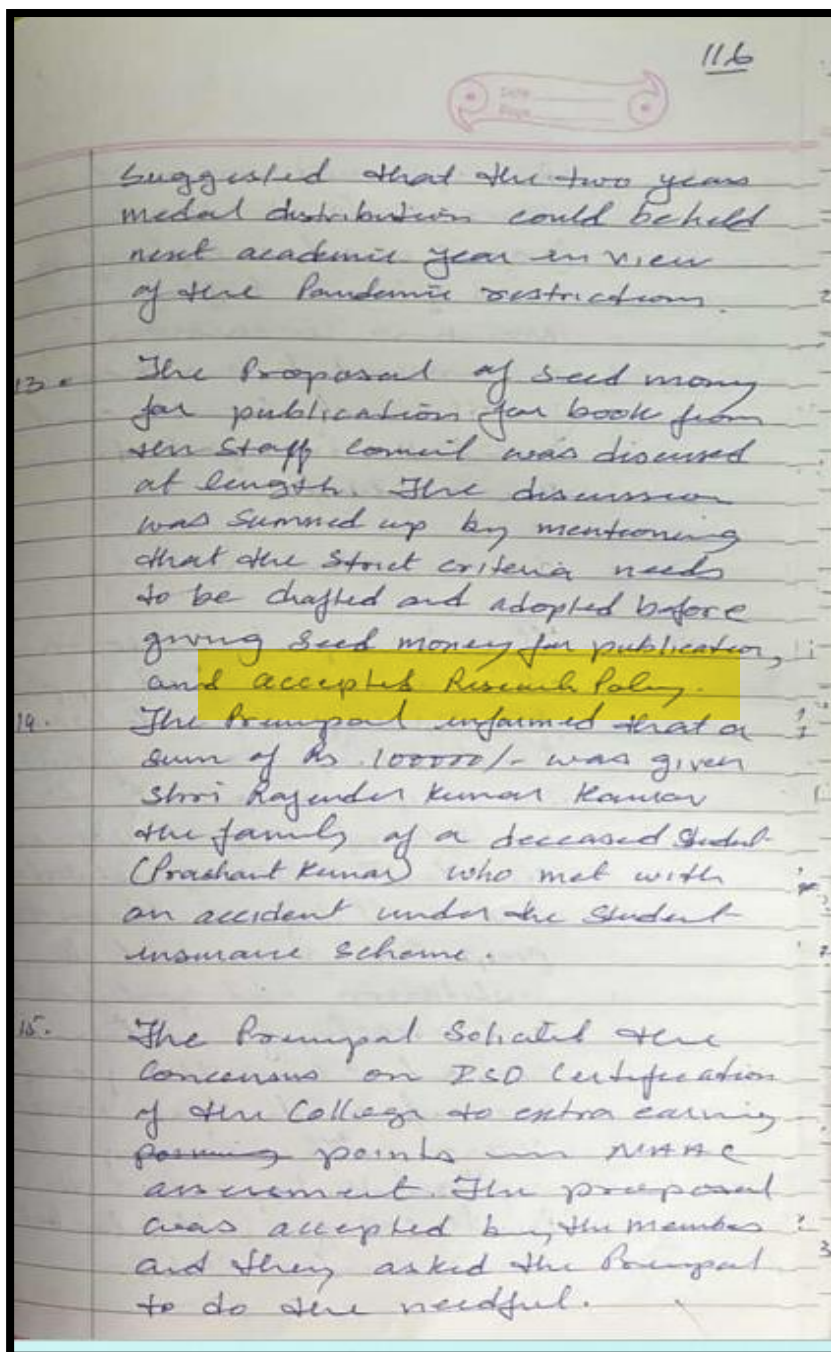 116
Date
Page
suggested that the two years
medal distribution could be held
next academic year in view
of the Pandemic restrictions.
13. The Proposal of seed money
for publication for book from
the Staff Council was discussed
at length. The discussion
was summed up by mentioning
that the strict criteria needs
to be drafted and adopted before
giving seed money for publication,
and accepted Research Policy.
14. The Principal informed that a
sum of Rs. 100000/- was given
Shri Rajender Kumar
the family of a deceased student
(Prashant Kumar) who met with
an accident under the Student
insurance scheme.
15. The Principal Solicited the
Concensus on ISO Certification
of the College to extra earning
points in NAAC
assessment. The proposal
was accepted by the member
and they asked the Principal
to do the needful.